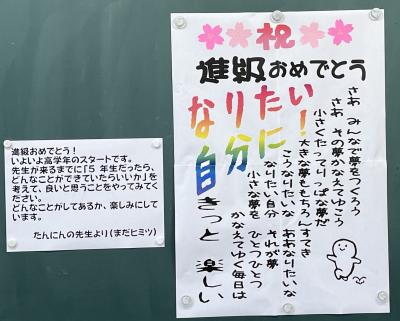 祝
進級おめでとう
なりたい!
自分に
さあ みんなで夢をつくろう
さあ その夢かなえてゆこう
小さくたってりっぱな夢だ
大きな夢ももちろんすてき
こうなりたいな ああなりたいな
なりたい自分 それが夢
小さな夢を ひとつひとつ
かなえてゆく毎日は
きっと 楽しい
進級おめでとう!
いよいよ高学年のスタートです。
先生が来るまでに「5 年生だったら、
どんなことができていたらいいか」を
考えて、良いと思うことをやってみてく
ださい。
どんなことがしてあるか、楽しみにして
います。
たんにんの先生より(まだヒミツ)